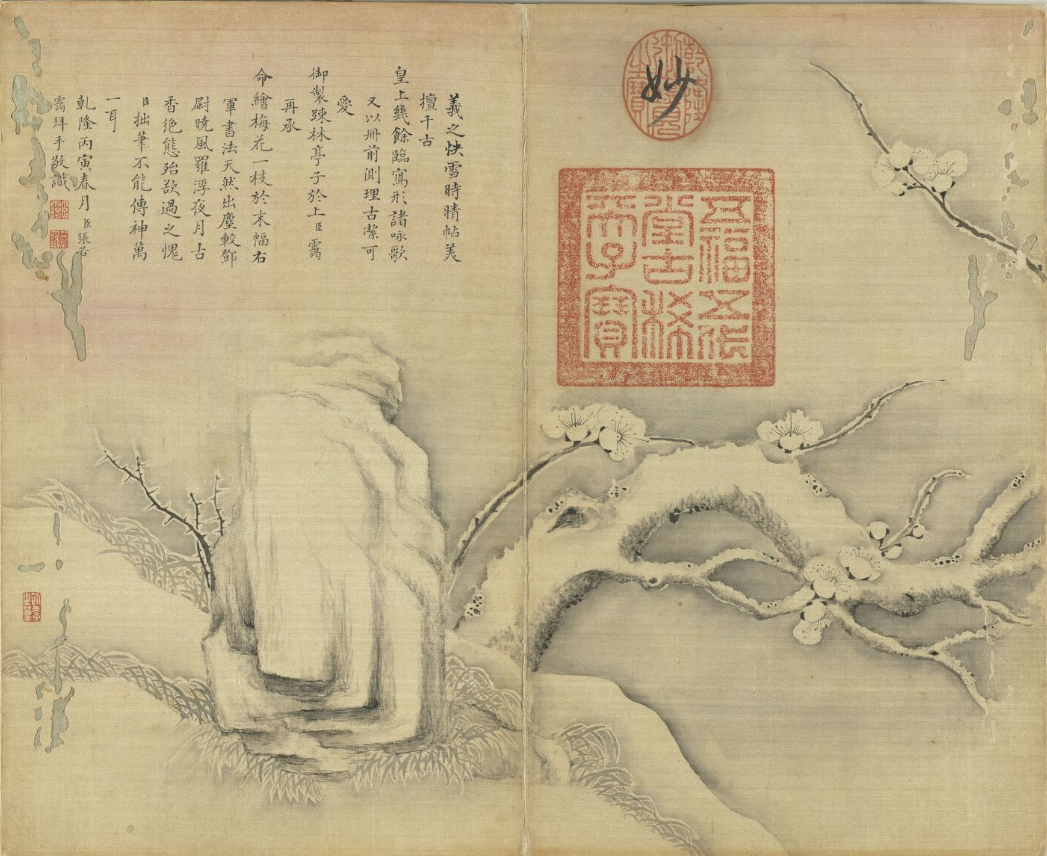 妙
五福五代
堂古稀
天子寶
羲之快雪時晴帖美
擅千古
皇上幾餘臨寫形諸咏歌
又以冊前側理古潔可
愛
御製踈林亭子於上臣靄
再承
命繪梅花一枝於末幅右
軍書法天然出塵較鄧
尉曉風羅浮夜月古
香絕態殆欲過之愧
臣拙筆不能傳神萬
一耳
乾隆丙寅春月臣張若
靄拜手敬識